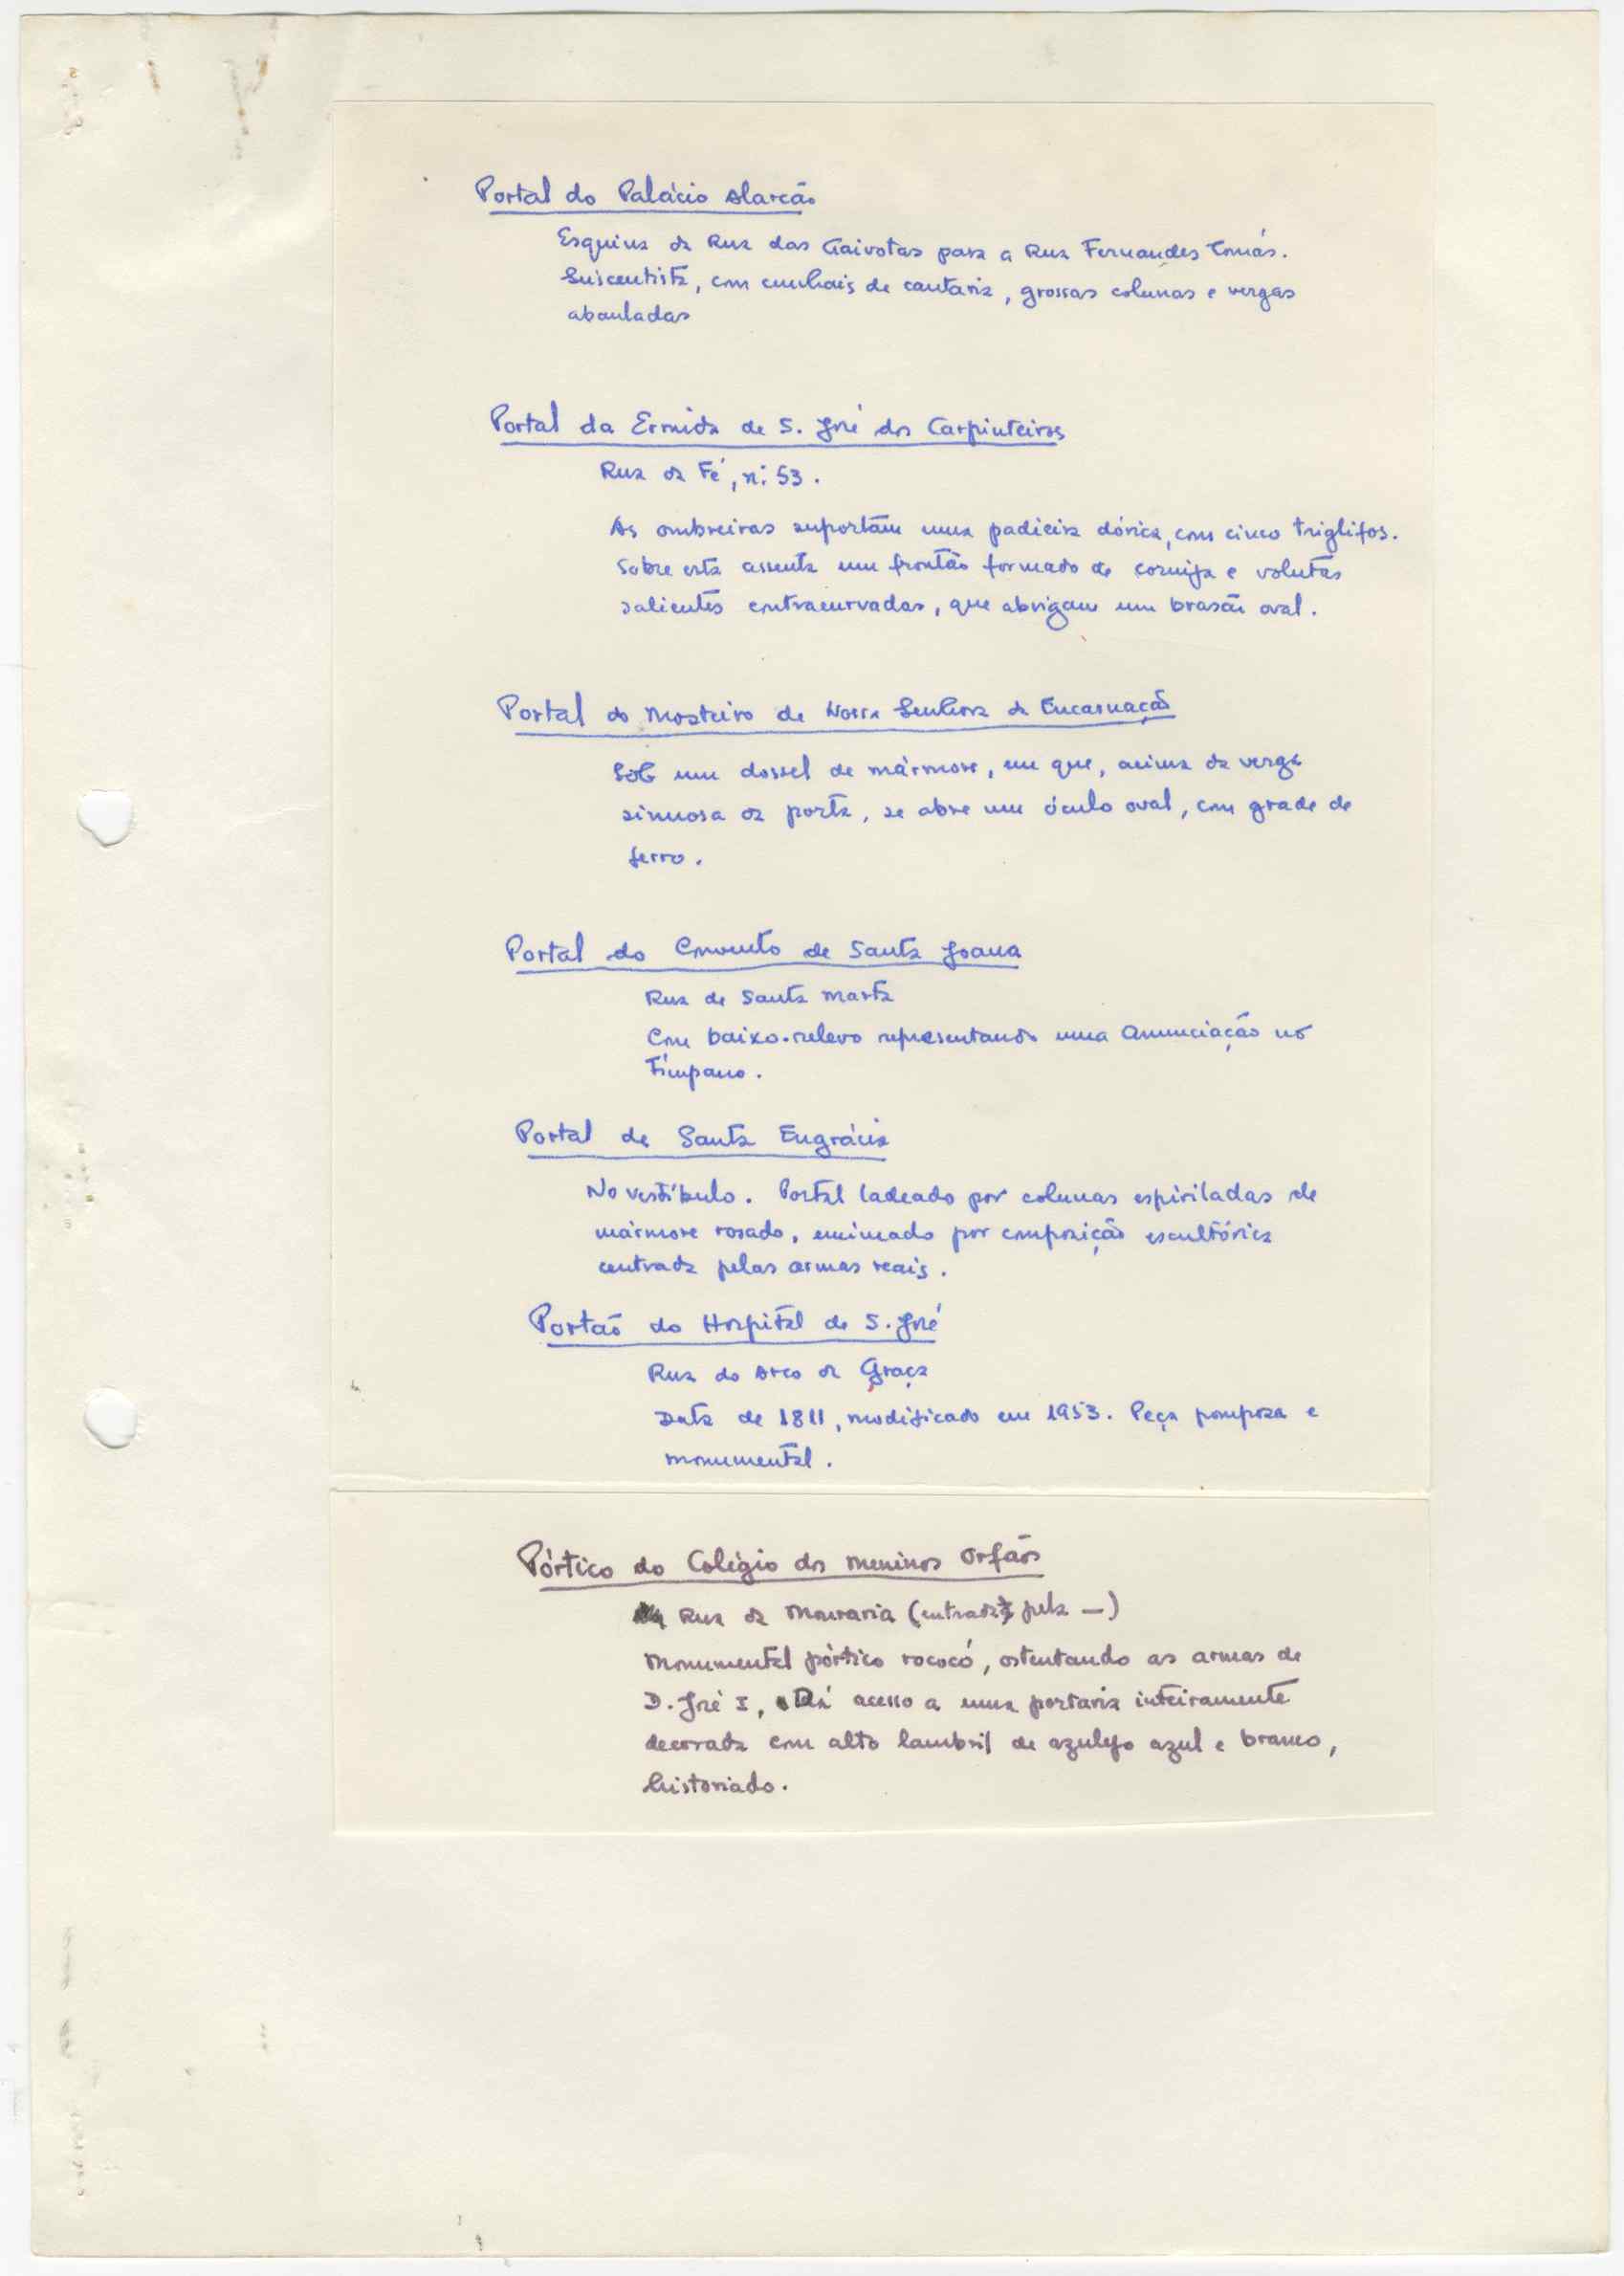 Portal do Palácio Alarcão
Esquina da Rua das Gaivotas para a Rua Fernandes Tomás.
Seiscentista, com cunhais de cantaria, grossas colunas e vergas
abauladas
Portal da Ermida de S. José dos Carpinteiros
Rua da Fé, nº 53.
As ombreiras suportam uma padieira dórica, com cinco triglifos.
Sobre esta assenta um frontão formado de cornija e volutas
salientes contracurvadas, que abrigam um brasão oval.
Portal do Mosteiro de Nossa Senhora da Encarnação
Sob um dossel de mármore, em que, acima da verga
sinuosa da porta, se abre um óculo oval, com grade de
ferro.
Portal do Convento de Santa Joana
Rua de Santa Marta
Com baixo-relevo representando uma Anunciação no
tímpano.
Portal de Santa Engrácia
No vestíbulo. Portal ladeado por colunas espiriladas de
mármore rosado, encimado por composição escultórica
centrada pelas armas reais.
Portão do Hospital de S. José
Rua do Arco da Graça
Data de 1811, modificado em 1953. Peça pomposa e
monumental.
Pórtico do Colégio dos Meninos Orfãos
Rua da Mouraria (entrada pela —)
Monumental pórtico rococó, ostentando as armas de
D. José I, Dá acesso a uma portaria inteiramente
decorada com alto lambril de azulejo azul e branco,
historiado.